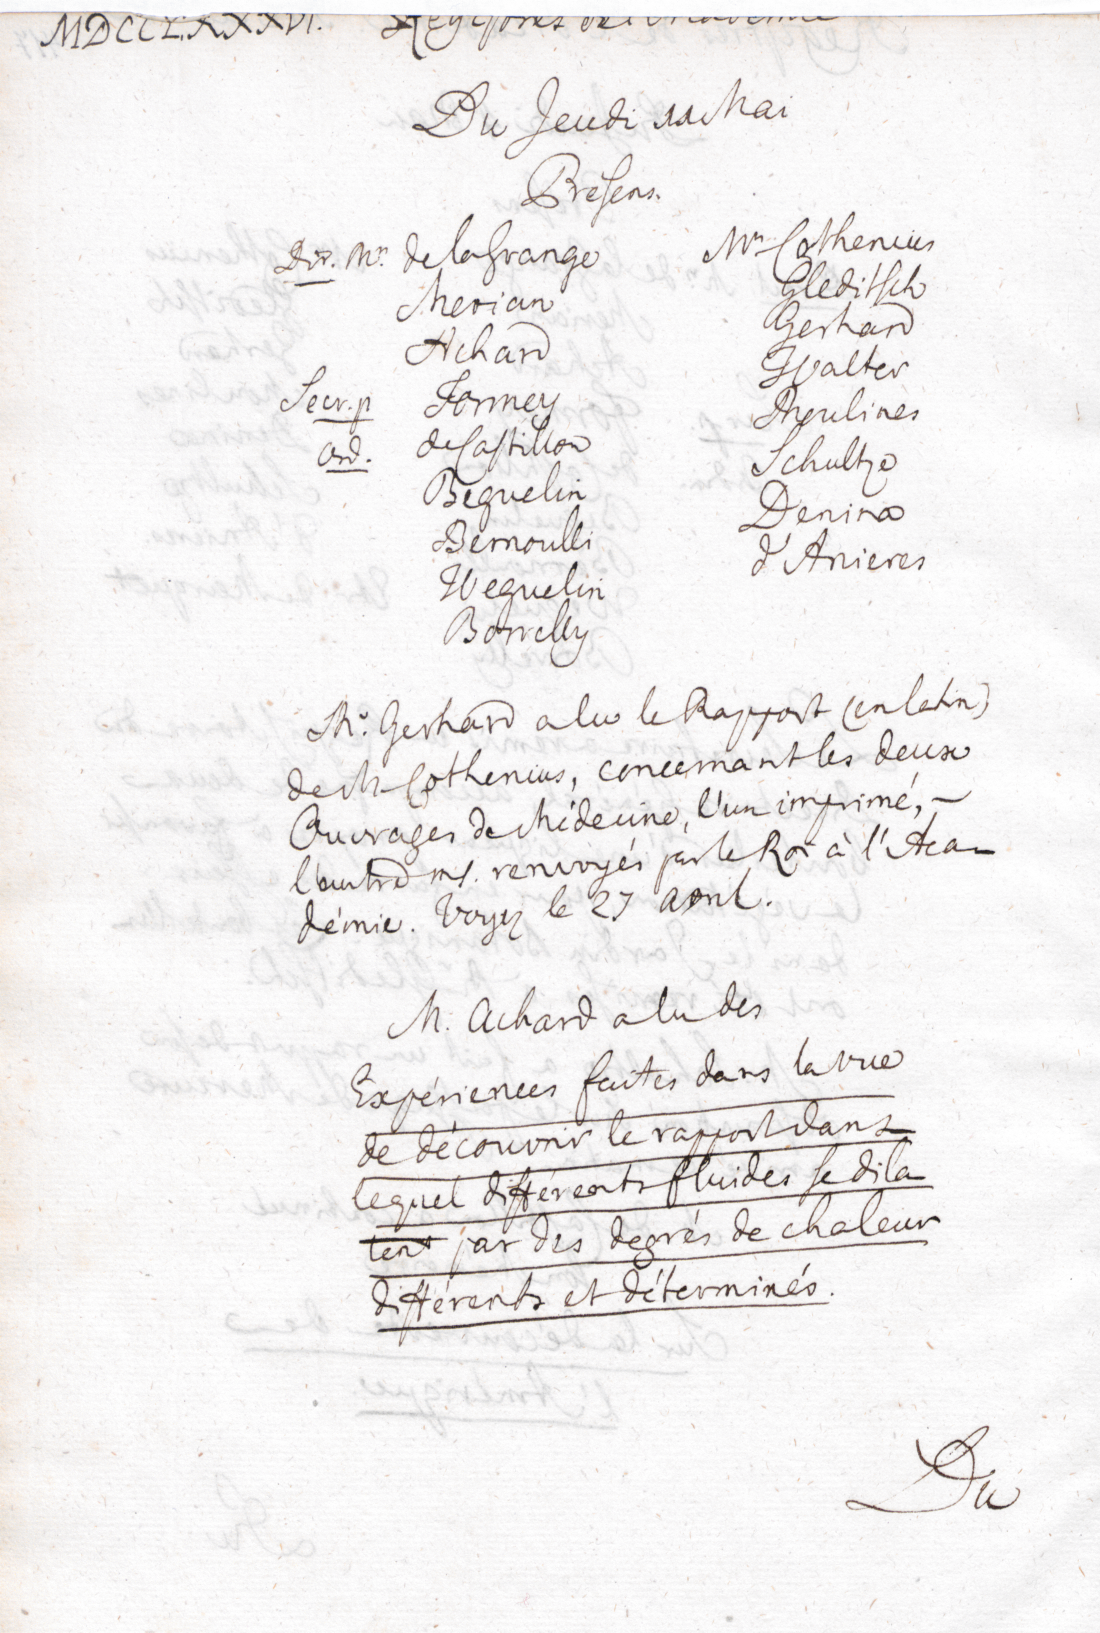 MDCCLXXXVI. Registres de l'Academie
Du Jeudi 11 Mai
Présens.
Dir. Mr. de la Grange
Merian
Achard
Secr. p Formey
Ord. de Castillon
Beguelin
Bernoulli
Weguelin
Borrelly
Mrs Cothenius
Gleditsch
Gerhard
Walter
Moulines
Schultze
Denina
d'Anieres
Mr. Gerhard a lu le Rapport (en latin)
de Mr Cothenius, concernant les deux
Ouvrages de Médecine, l'un imprimé, –
l'autre ms. renvoyés par le Roi à l'Aca–
démie. Voyez le 27 avril.
M. Achard a lu des
Expériences faites dans la vue
de découvrir le rapport dans
lequel différents fluides se dila
tent par des degrés de chaleur
différents et déterminés.
Du